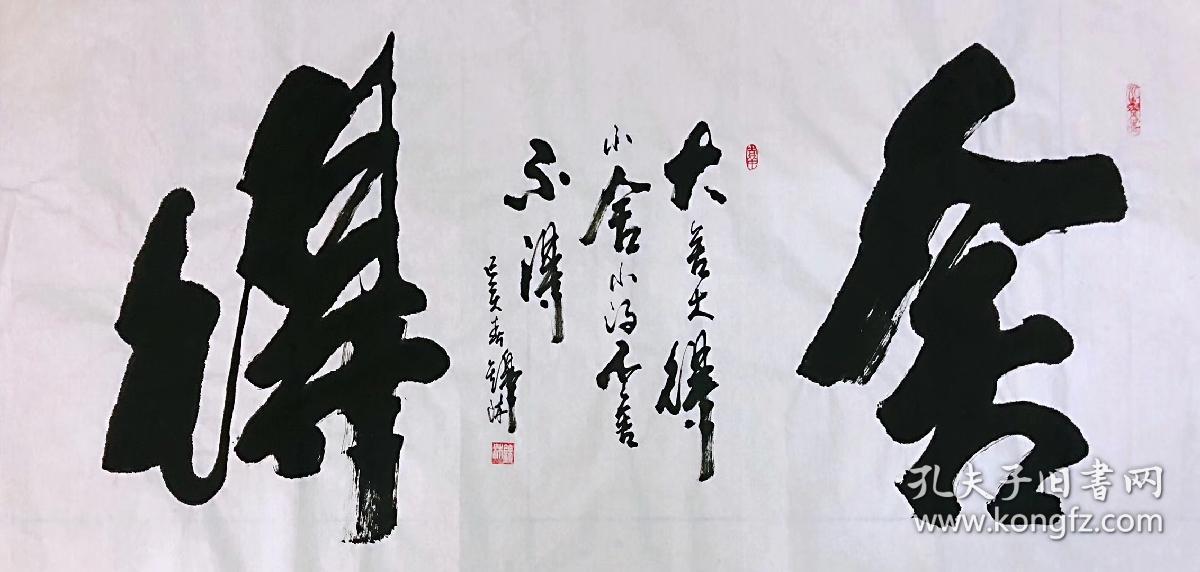 舍得
大舍大得
小舍小得不舍
不得
己亥春
孔夫子旧书网
www.kongfz.com